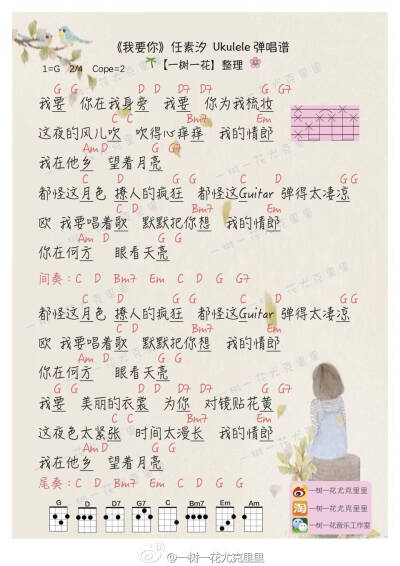 《我要你》任素汐 Ukulele 弹唱谱
1=G 2/4 Cope=2 【一树一花】整理
G G D D D7 D7 G G7
我要 你在我身旁 我要 你为我梳妆
C C Bm7 Em
这夜的风儿吹 吹得心痒痒 我的情郎
Am D G G7
我在他乡 望着月亮
C D G G C D G G
都怪这月色 撩人的疯狂 都怪这Guitar 弹得太凄凉
C D Bm7 Em
欧 我要唱着歌 默默把你想 我的情郎
Am D G G
你在何方 眼看天亮
间奏：C D Bm7 Em C D G G
C D G G C D G G
都怪这月色 撩人的疯狂 都怪这Guitar 弹得太凄凉
C D Bm7 Em
欧 我要唱着歌 默默把你想 我的情郎
Am D G G
你在何方 眼看天亮
G G D D D7 D7 G G7
我要 美丽的衣裳 为你 对镜贴花黄
C C Bm7 Em
这夜色太紧张 时间太漫长 我的情郎
Am D G G
我在他乡 望着月亮
尾奏：C D Bm7 Em C D G G
G D D7 G7 C Bm7 Em Am
一树一花尤克里里
淘 一树一花尤克里里
一树一花音乐工作室
@一树一花尤克里里